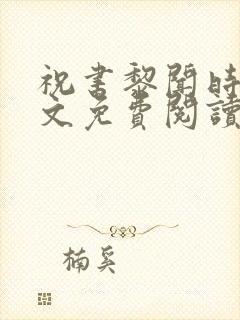 祝書黎聞時
文免費閱讀
楠奚